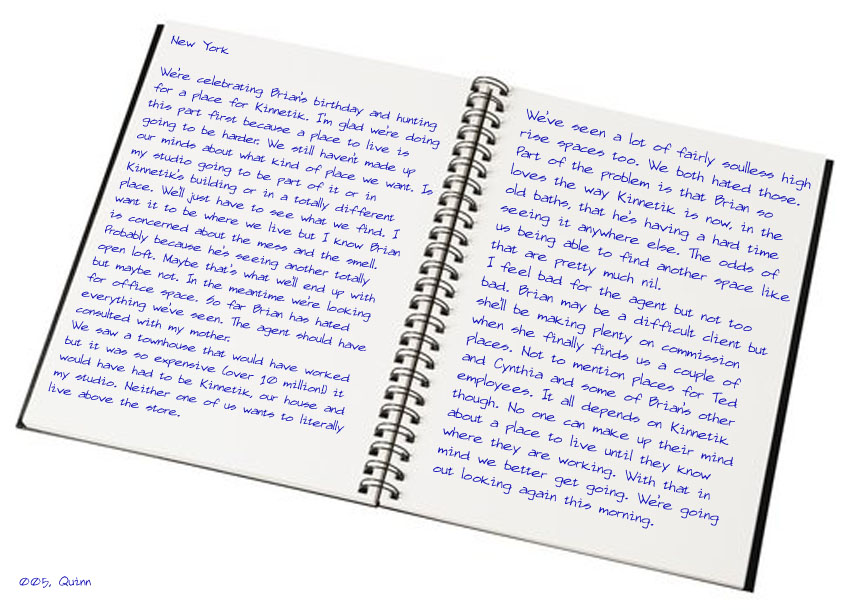 New York
We're celebrating Brian's birthday and hunting
for a place for Kinnetik. I'm glad we're doing
this part first because a place to live is
going to be harder. We still haven't made up
our minds about what kind of place we want. Is
my studio going to be part of it or in
Kinnetik's building or in a totally different
place. We'll just have to see what we find. I
want it to be where we live but I know Brian
is concerned about the mess and the smell.
Probably because he's seeing another totally
open loft. Maybe that's what we'll end up with
but maybe not. In the meantime we're looking
for office space. So far Brian has hated
everything we've seen. The agent should have
consulted with my mother.
We saw a townhouse that would have worked
but it was so expensive (over 10 million!) it
would have had to be Kinnetik, our house and
my studio. Neither one of us wants to literally
live above the store.
We've seen a lot of fairly soulless high
rise spaces too. We both hated those.
Part of the problem is that Brian so
loves the way Kinnetik is now, in the
old baths, that he's having a hard time
seeing it anywhere else. The odds of
us being able to find another space like
that are pretty much nil.
I feel bad for the agent but not too
bad. Brian may be a difficult client but
she'll be making plenty on commission
when she finally finds us a couple of
places. Not to mention places for Ted
and Cynthia and some of Brian's other
employees. It all depends on Kinnetik
though. No one can make up their mind
about a place to live until they know
where they are working. With that in
mind we better get going. We're going
out looking again this morning.
005, Quinn